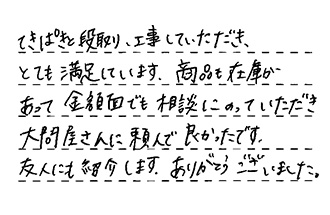 てきぱきと段取り、工事していただき、
とても満足しています。商品も在庫が
あって金額面でも相談にのっていただき
大問屋さんに頼んで良かったです。
友人にも紹介します。ありがとうございました。